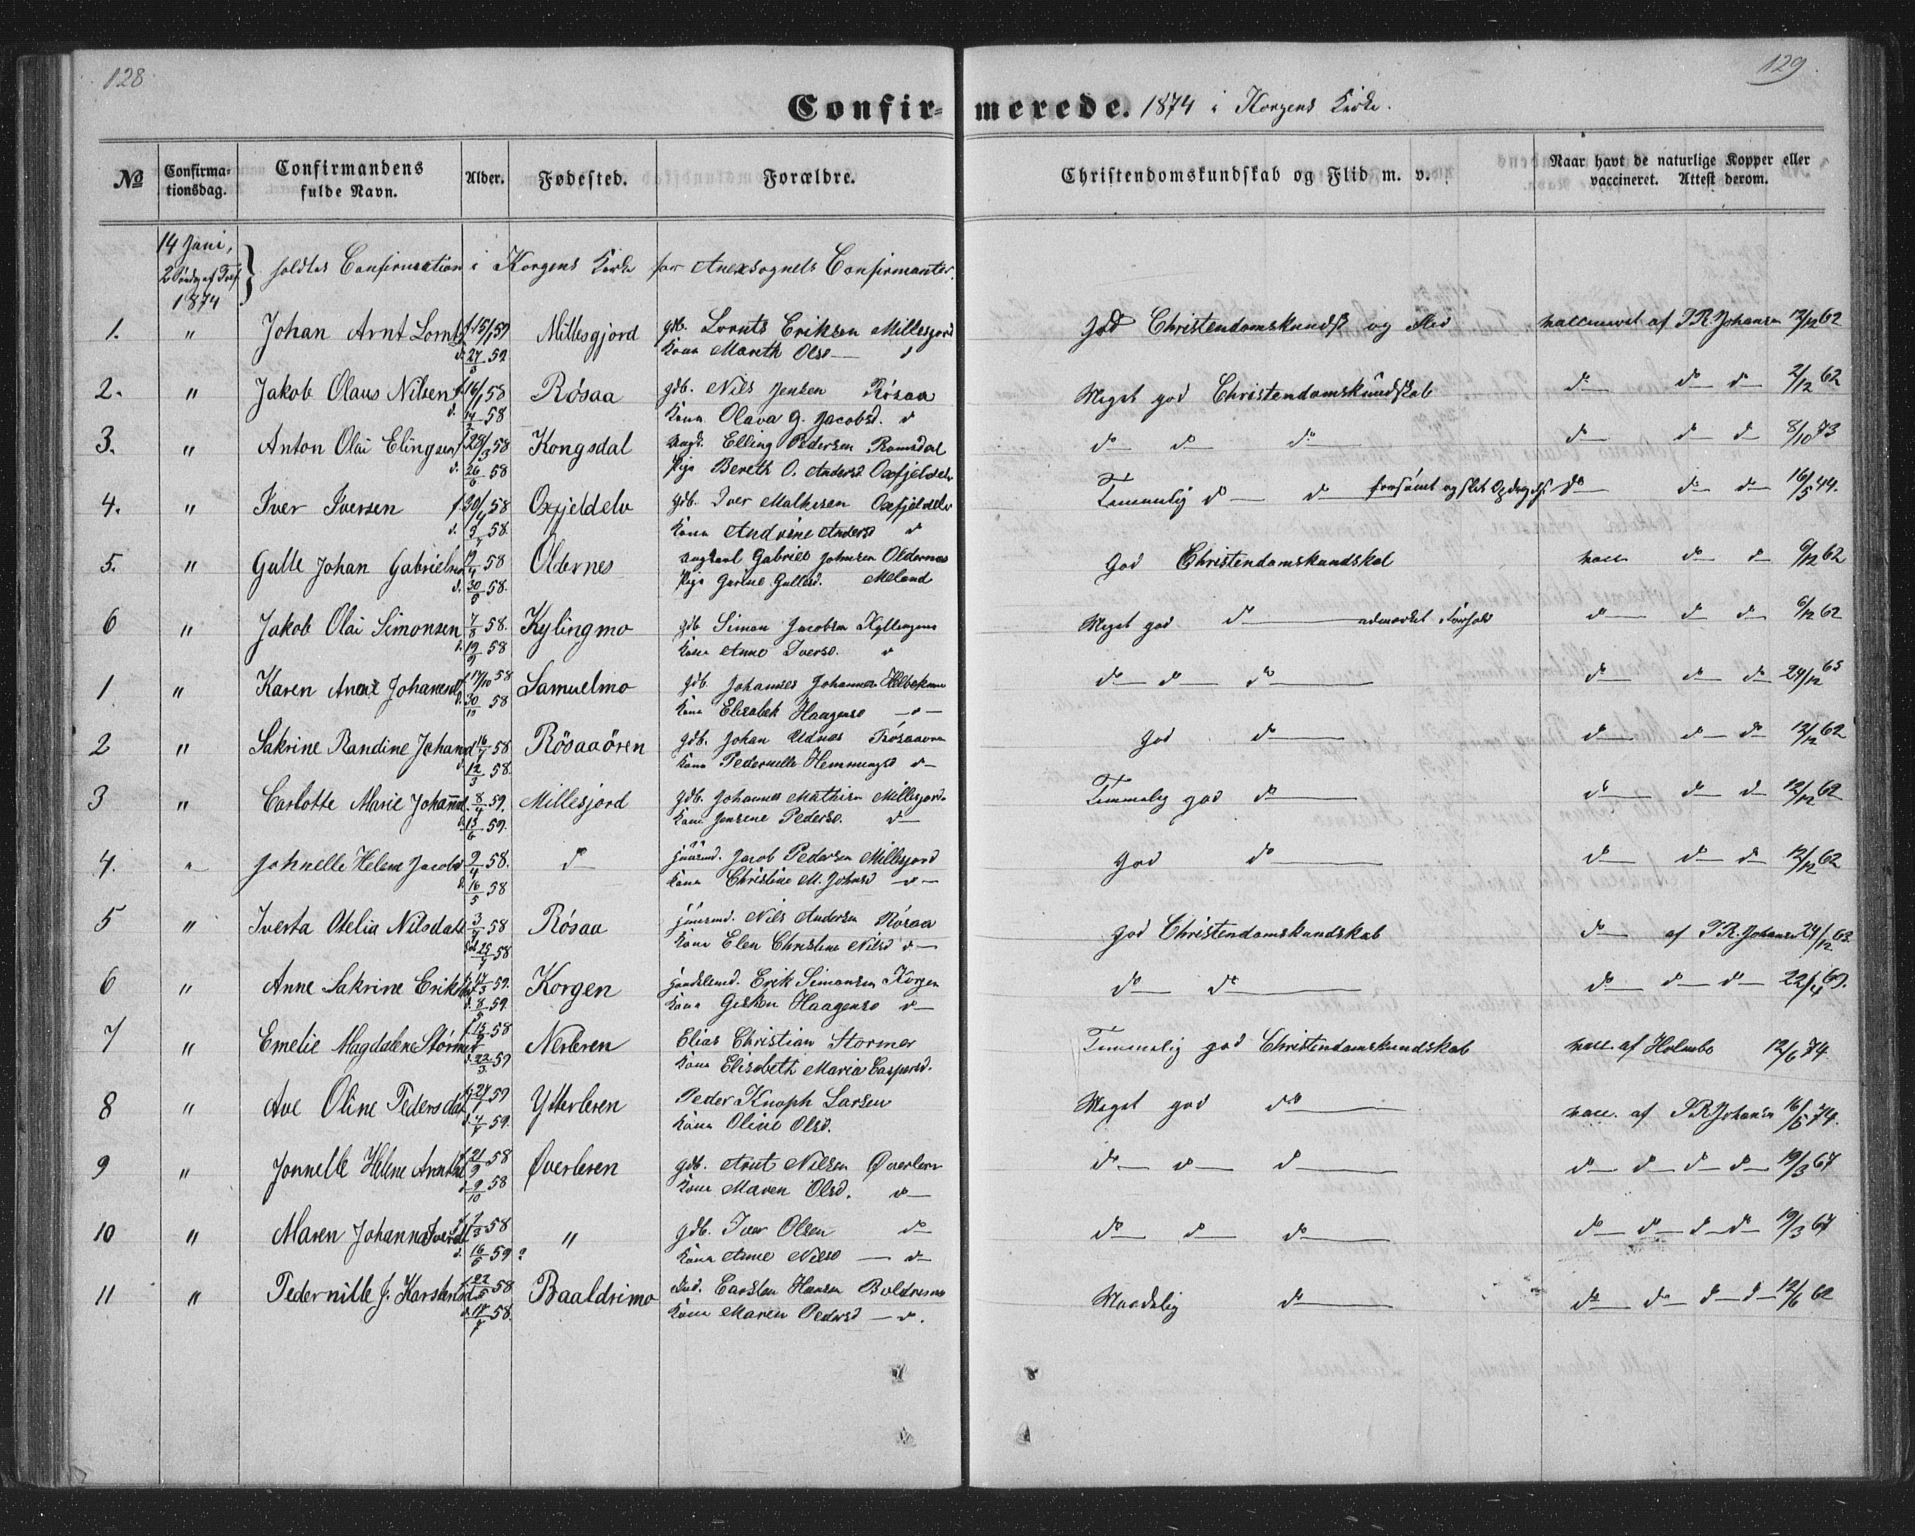 128
129
Confirmerede. 1874 i Korgens Kirke.
No
Confirmationsdag.
Confirmandens fulde Navn.
Alder.
Fødested.
Forældre.
Christendomskundskab og Flid m. v.
Naar havt de naturlige Kopper eller vaccineret. Attest derom.
14 Juni, holdtes Confirmation i Korgens Kirke for Anexsognets Confirmanter.
1874
1. " Johan Arnt f. 15/1 59 Millesjord gdb. Lornts Eriksen Millesjord God Christendomskundsk og Flid af J R Johansen 12/12 62
d. 27/3 59. Kone Mareth Olsd — d
2. " Jakob Olaus Nilsen f. 16/1 58 Røsaa gdb. Nils Jensen Røsaa Meget god Christendomskundskab do d d 2/12 62
d. 58 Kone Olava G. Jacobsd. d
3. " Anton Olai Elingsen f. 28/3 58 Kongsdal Elling Pedersen d d d do d d 8/10 73
d. 26/6 58 Pige Bereth O. Andersd Oxfjeldelv
4. " Iver Iversen f. 58 Oxfjeldelv gdb. Iver Mathisen Oxfjeldelv Temmelig d d forsømt og slet do d d 16/5 44.
d. 58. Kone Andrine Andersd d
5. " Gulle Johan Gabrielsen 58 Oldernes Gabriel Johnsen Oldernes God Christendomskundskab vacc d d 6/12 62
d. 30/5 58. Pige Gurine Gullesd. Meland
6 " Jakob Olai Simonsen 7/8 58. Kylingmo gdb Simon Jacobsen Meget god d udmærket Forhold do d d 6/12 62
d. 19/9 58 Kone Anne Iversd. d
1 " Karen Anne Johannesd f. 17/10 58 Samuelmo gdb. Johannes Johannes. d d d do d d 24/12 65
d. 30/ 58 Kone Elisabeth Haagensd — d —
2 " Sakrine Randine Johand 16/ 58 Røsaaören gdb. Johan Røsaaören God do do d d 12/12 62
d. 12/3 58. Kone Pedernille Hemmingsd d —
3 " Carlotte Marie Johannd. 8/4 59. Millesjord gdb. Johannes Mathisen Millesjord Temmelig god do do d d 12/12 62
d. 13/6 59. Kone Jensine Pedersd. d —
4. " Johnelle Helene Jacobsd 2/4 58. d — Jacob Pedersen Millesjord God do do d d 12/12 62
d. 16/5 58 Kone Christine M. Johnsd — d —
5 " Iverta Otelia Nilsdatt 3/ 58 Røsaa Nils Andersen Røsaa God Christendomskundskab do af J R. Johansen 24/12 63.
d. 25/ 58 Kone Elen Christine Nilsd d —
6 " Anne Sakrine Eriksd f. 17/3 59. Korgen Erik Simonsen Korgen d do do d d 22/4 69.
d. 8/5 59. Kone Gisken Haagensd d —
7 " Emelie Magdalene Størmer f. 13/ 58 Nerleren Elias Christian Størmer Temmelig god Christendomskundskab vacc. af Holmbo 12/6 74.
d. 22/3 59 Kone Elisabeth Maria Caspersd.
8 " Ave Oline Pedersdat f. 24/ 59 Ytterleren Peder Knoph Larsen Meget god do vacc. af J R Johansen 16/5 74.
d. 4/ 59. Kone Oline Olsd.
9 " Jonnelle Helene Arntsd f. 21/9 58 Øverleren gdb. Arnt Nilsen Øverleren d d d d d d d 19/3 67
d. 9/10 58 Kone Maren Olsd. d —
10 " Maren Johanna Iversd f. /3 58 " gdb. Iver Olsen do do d do do d d d 19/3 67
d. 16/6 59? Kone Anne Nilsd — d —
11 " Pedernille J. Karstensd f. 22/5 58 Baaldrimo Ind. Carsten Hansen Maadelig do do d d d 12/6 62
d. 17/7 58. Kone Maren Pedersd — d.